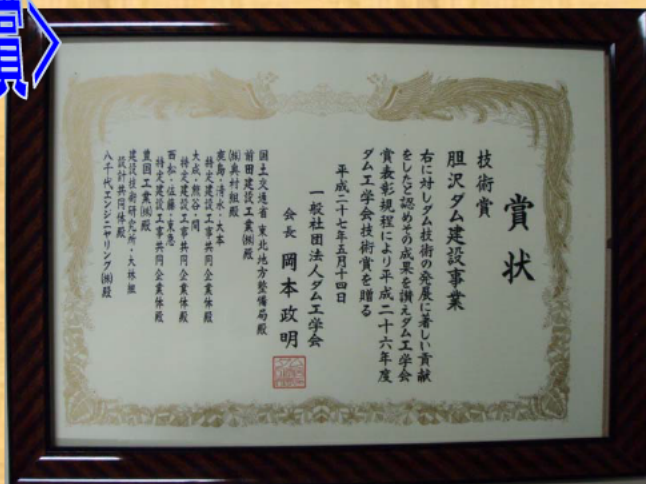 賞〉
賞状
技術賞
胆沢ダム建設事業
右に対しダム技術の発展に著しい貢献
をしたと認めその成果を讃えダム工学会
賞表彰規程により平成二十六年度
ダム工学会技術賞を贈る
平成二十七年五月十四日
一般社団法人ダム工学会
会長 岡本政明
国土交通省 東北地方整備局殿
前田建設工業㈱殿
㈱奥村組殿
鹿島・清水・大本
特定建設工事共同企業体殿
大成・熊谷・間
特定建設工事共同企業体殿
西松・佐藤・東急
特定建設工事共同企業体殿
豊国工業㈱殿
建設技術研究所・大林組
設計共同体殿
八千代エンジニヤリング㈱殿